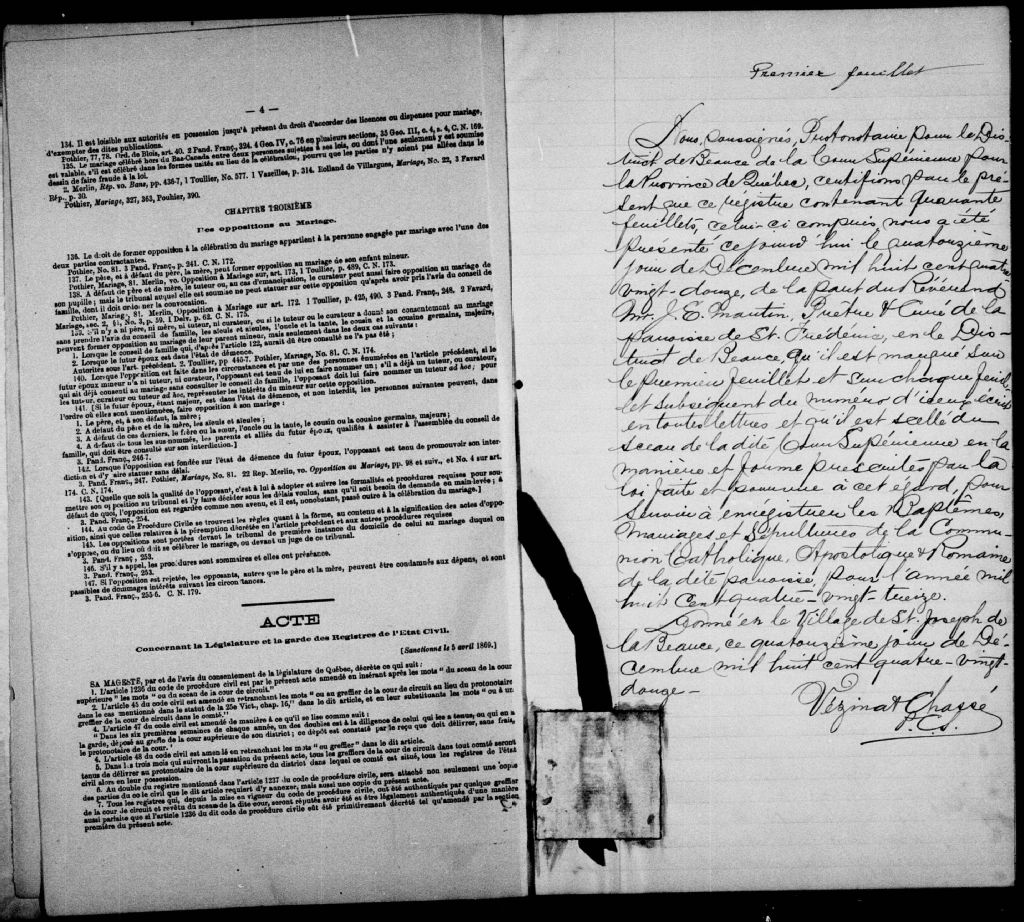 — 4 —
134. Il est loisible aux autorités en possession jusqu'à présent du droit d'accorder des licences ou dispenses pour mariage,
d'exempter des dites publications.
Pothier, 77, 78. Ord. de Blois, art. 40. 2 Pand. Franç., 324. 4 Geo. IV, c. 76 en plusieurs sections, 35 Geo. III, c. 4, s. 4, C. N. 169.
135. Le mariage célébré hors du Bas-Canada entre deux personnes sujettes à ses lois, ou dont l'une seulement y est soumise
est valable, s'il est célébré dans les formes usitées au lieu de la célébration, pourvu que les parties n'y soient pas allées dans le
dessin de faire fraude à la loi.
2. Merlin, Rép. vo. Bans, pp. 436-7, 1 Toullier, No. 577. 1 Vazeilles, p. 314. Rolland de Villargues, Mariage, No. 22, 3 Favard
Rép., p. 30.
Pothier, Mariage, 327, 363, Pouhier, 390.
CHAPITRE TROISIÈME
Des oppositions au Mariage.
136. Le droit de former opposition à la célébration du mariage appartient à la personne engagée par mariage avec l'une des
deux parties contractantes.
Pothier, No. 81. 3 Pand. Franç., p. 241. C. N. 172.
137. Le père, et à défaut du père, la mère, peut former opposition au mariage de son enfant mineur.
Pothier, Mariage, 81. Merlin, vo. Opposition à Mariage sur art. 173, 1 Toullier, p. 489, C. N. 173.
138. A défaut de père et de mère, le tuteur ou, au cas d'émancipation, le curateur peut aussi faire opposition au mariage de
son pupille; mais le tribunal auquel elle est soumise ne peut statuer sur cette opposition qu'après avoir pris l'avis du conseil de
famille, dont il doit ordonner la convocation.
Pothier, Mariage, 81. Merlin, Opposition à Mariage sur art. 172. 1 Toullier, p. 425, 490. 3 Pand. Franç., 248. 2 Favard,
Mariage, sec. 2, §1, No. 3, p. 59. 1 Delv. p. 62. C. N. 175.
139. S'il n'y a ni père, ni mère, ni tuteur, ni curateur, ou si le tuteur ou le curateur a donné son consentement au mariage
sans prendre l'avis du conseil de famille, les aïeuls et aïeules, l'oncle et la tante, le cousin et la cousine germaines, majeurs,
peuvent former opposition au mariage de leur parent mineur, mais seulement dans les deux cas suivants:
1. Lorsque le conseil de famille qui, d'après l'article 122, aurait dû être consulté ne l'a pas été;
2. Lorsque le futur époux est dans l'état de démence.
Autorités sous l'art. précédent. 2. Toullier, pp 445-7. Pothier, Mariage, No. 81. C. N. 174.
140. Lorsque l'opposition est faite dans les circonstances et par une des personnes énumérées en l'article précédent, si le
futur époux mineur n'a ni tuteur, ni curateur, l'opposant est tenu de lui en faire nommer un; s'il a déjà un tuteur, ou curateur,
qui ait déjà consenti au mariage sans consulter le conseil de famille, l'opposant doit lui faire nommer un tuteur ad hoc; pour
les tuteur, curateur ou tuteur ad hoc, représenter les intérêts du mineur sur cette opposition.
141. [Si le futur époux, étant majeur, est dans l'état de démence, et non interdit, les personnes suivantes peuvent, dans
l'ordre où elles sont mentionnées, faire opposition à son mariage:
1. Le père, et, à son défaut, la mère;
2. A défaut du père et de la mère, les aïeuls et aïeules;
3. A défaut de ces derniers, le frère ou la sœur, l'oncle ou la tante, le cousin ou la cousine germains, majeurs;
4. A défaut de tous les sus-nommés, les parents et alliés du futur époux, qualifiés à assister à l'assemblée du conseil de
famille, qui doit être consulté sur son interdiction.]
3. Pand. Franç., 246-7.
142. Lorsque l'opposition est fondée sur l'état de démence du futur époux, l'opposant est tenu de promouvoir son inter-
diction et d'y faire statuer sans délai.
3. Pand. Franç., 247. Pothier, Mariage, No. 81. 22 Rep. Merlin, vo. Opposition au Mariage, pp 98 et suiv., et No. 4 sur art.
174. C. N. 174.
143. [Quelle que soit la qualité de l'opposant, c'est à lui à adopter et suivre les formalités et procédures requises pour sou-
mettre son opposition au tribunal et l'y faire décider sous les délais voulus, sans qu'il soit besoin de demande en main-levée; à
défaut de quoi, l'opposition est regardée comme non avenu, et il est, nonobstant, passé outre à la célébration du mariage.]
3. Pand. Franç., 254.
144. Au code de Procédure Civile se trouvent les règles quant à la forme, au contenu et à la signification des actes d'oppo-
sition, ainsi que celles relatives à la péremption décrétée en l'article précédent et aux autres procédures requises
145. Les oppositions sont portées devant le tribunal de première instance du domicile de celui au mariage duquel on
s'oppose, ou du lieu où doit se célébrer le mariage, ou devant un juge de ce tribunal.
3. Pand. Franç., 253.
146. S'il y a appel, les procédures sont sommaires et elles ont préséance.
3. Pand. Franç., 253.
147. Si l'opposition est rejetée, les opposants, autres que le père et la mère, peuvent être condamnés aux dépens, et sont
passibles de dommages intérêts suivant les circonstances.
3. Pand. Franç., 255-6. C. N. 179.
ACTE
Concernant la Législature et la garde des Registres de l'Etat Civil.
[Sanctionné le 5 avril 1869.]
SA MAGESTÉ, par et de l'avis du consentement de la législature de Québec, décrète ce qui suit:
1. L'article 1236 du code de procédure civil est par le présent acte amendé en insérant après les mots "du sceau de la cour
supérieure" les mots "ou du sceau de la cour de circuit."
2. L'article 45 du code civil est amendé en retranchant les mots "ou au greffier de la cour de circuit au lieu du protonotaire
dans le cas mentionné dans le statut de la 25e Vict., chap. 16," dans le dit article, et en leur substituant les mots "ou à un
greffier de la cour de circuit dans le comté."
3. L'article 47 du code civil est amendé de manière à ce qu'il se lise comme suit:
"Dans les six premières semaines de chaque année, un des doubles est à la diligence de celui qui les a tenus, ou qui en a
la garde, déposé au greffe de la cour supérieure de son district; ce dépôt est constaté par le reçu que doit délivrer, sans frais,
le protonotaire de la cour."
4. L'article 48 du code civil est amendé en retranchant les mots "ou greffier" dans le dit article.
5. Dans les trois mois qui suivront la passation du présent acte, tous les greffiers de la cour de circuit dans tout comté seront
tenus de délivrer au protonotaire de la cour supérieure du district dans lequel ce comté est situé, tous les registres de l'état
civil alors en leur possession.
6. Au double du registre mentionné dans l'article 1237 du code de procédure civile, sera attaché non seulement une copie
des parties du code civil que le dit article requiert d'y annexer, mais aussi une copie du présent acte.
7. Tous les registres qui, depuis la mise en vigueur du code de procédure civile, ont été authentiqués par quelque greffier
de la cour de circuit et revêtu du sceau de la dite cour, seront réputés avoir été et être légalement authentiqués d'une manière
aussi parfaite que si l'article 1236 du dit code de procédure civile eût été primitivement décrété tel qu'amendé par la section
première du présent acte.
Premier feuillet
Nous, soussignés, Protonotaire pour le Dis-
trict de Beauce de la Cour Supérieure pour
la Province de Québec, certifions par le pré-
sent que ce registre contenant quarante
feuillets, celui-ci compris, nous a été
présenté ce jourd'hui le quatorzième
jour de Décembre mil huit cent quatre
vingt-douze, de la part du Révérend
Mr. J. E. Martin, Prêtre & Curé de la
paroisse de St. Frédéric, en le Dis-
trict de Beauce, qu'il est marqué sur
le premier feuillet et sur chaque feuil-
let subséquent du numéro d'iceux écrit
en toutes lettres et qu'il est scellé du
sceau de la dite Cour Supérieure en la
manière et forme prescrites par la
loi faite et pourvue à cet égard, pour
servir à enregistrer les Baptêmes,
Mariages et Sépultures de la Commu-
nion Catholique, Apostolique & Romaine
de la dite paroisse, pour l'année mil
huit cent quatre-vingt-treize.
Donné en le Village de St. Joseph de
la Beauce, ce quatorzième jour de Dé-
cembre mil huit cent quatre-vingt-
douze –
Vézina & Chassé
P.C.S.